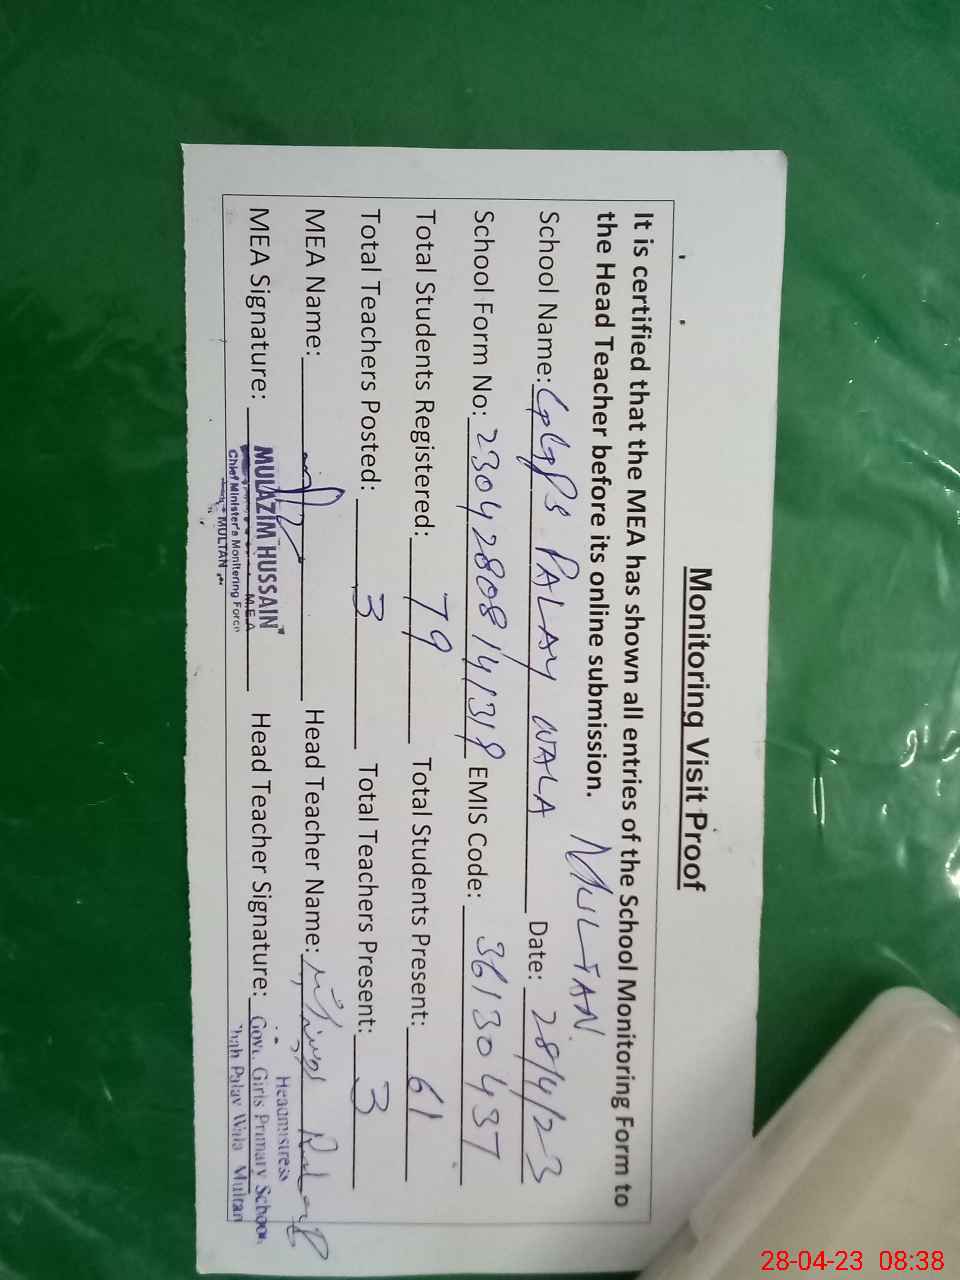 Monitoring Visit Proof
It is certified that the MEA has shown all entries of the School Monitoring Form to
the Head Teacher before its online submission. MULTAN.
School Name: GGPS PALAY WALA Date: 28/4/23
School Form No: 23042808141318 EMIS Code: 36130437
Total Students Registered: 79 Total Students Present: 61
Total Teachers Posted: 3 Total Teachers Present: 3
MEA Name: Head Teacher Name:
MEA Signature: Head Teacher Signature:
MULAZIM HUSSAIN
M.E.A
Chief Minister's Monitoring Force
MULTAN
Headmistress
Govt. Girls Primary School
Chah Palay Wala Multan
28-04-23 08:38